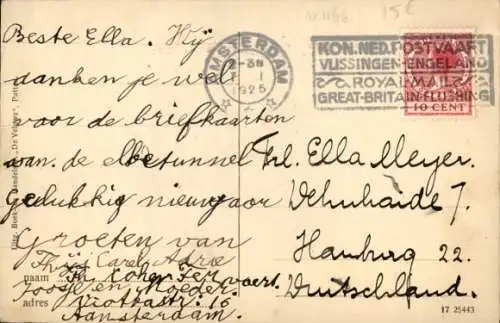 Beste Ella. Wij
danken je wel
voor de briefkaarten
van de elbetunnel
Gelukkig nieuwjaar
Groeten van
Carel Adrie
naam Cohen
Joosje en Moeder
adres
Amsterdam.
Frl. Ella Meyer.
7.
Hamburg 22.
Duitschland.
AMSTERDAM
1 1
1925
KON. NED. POSTVAART
VLISSINGEN-ENGELAND
ROYAL MAIL
GREAT-BRITAIN-FLUSHING
10 CENT
15€
17 25443